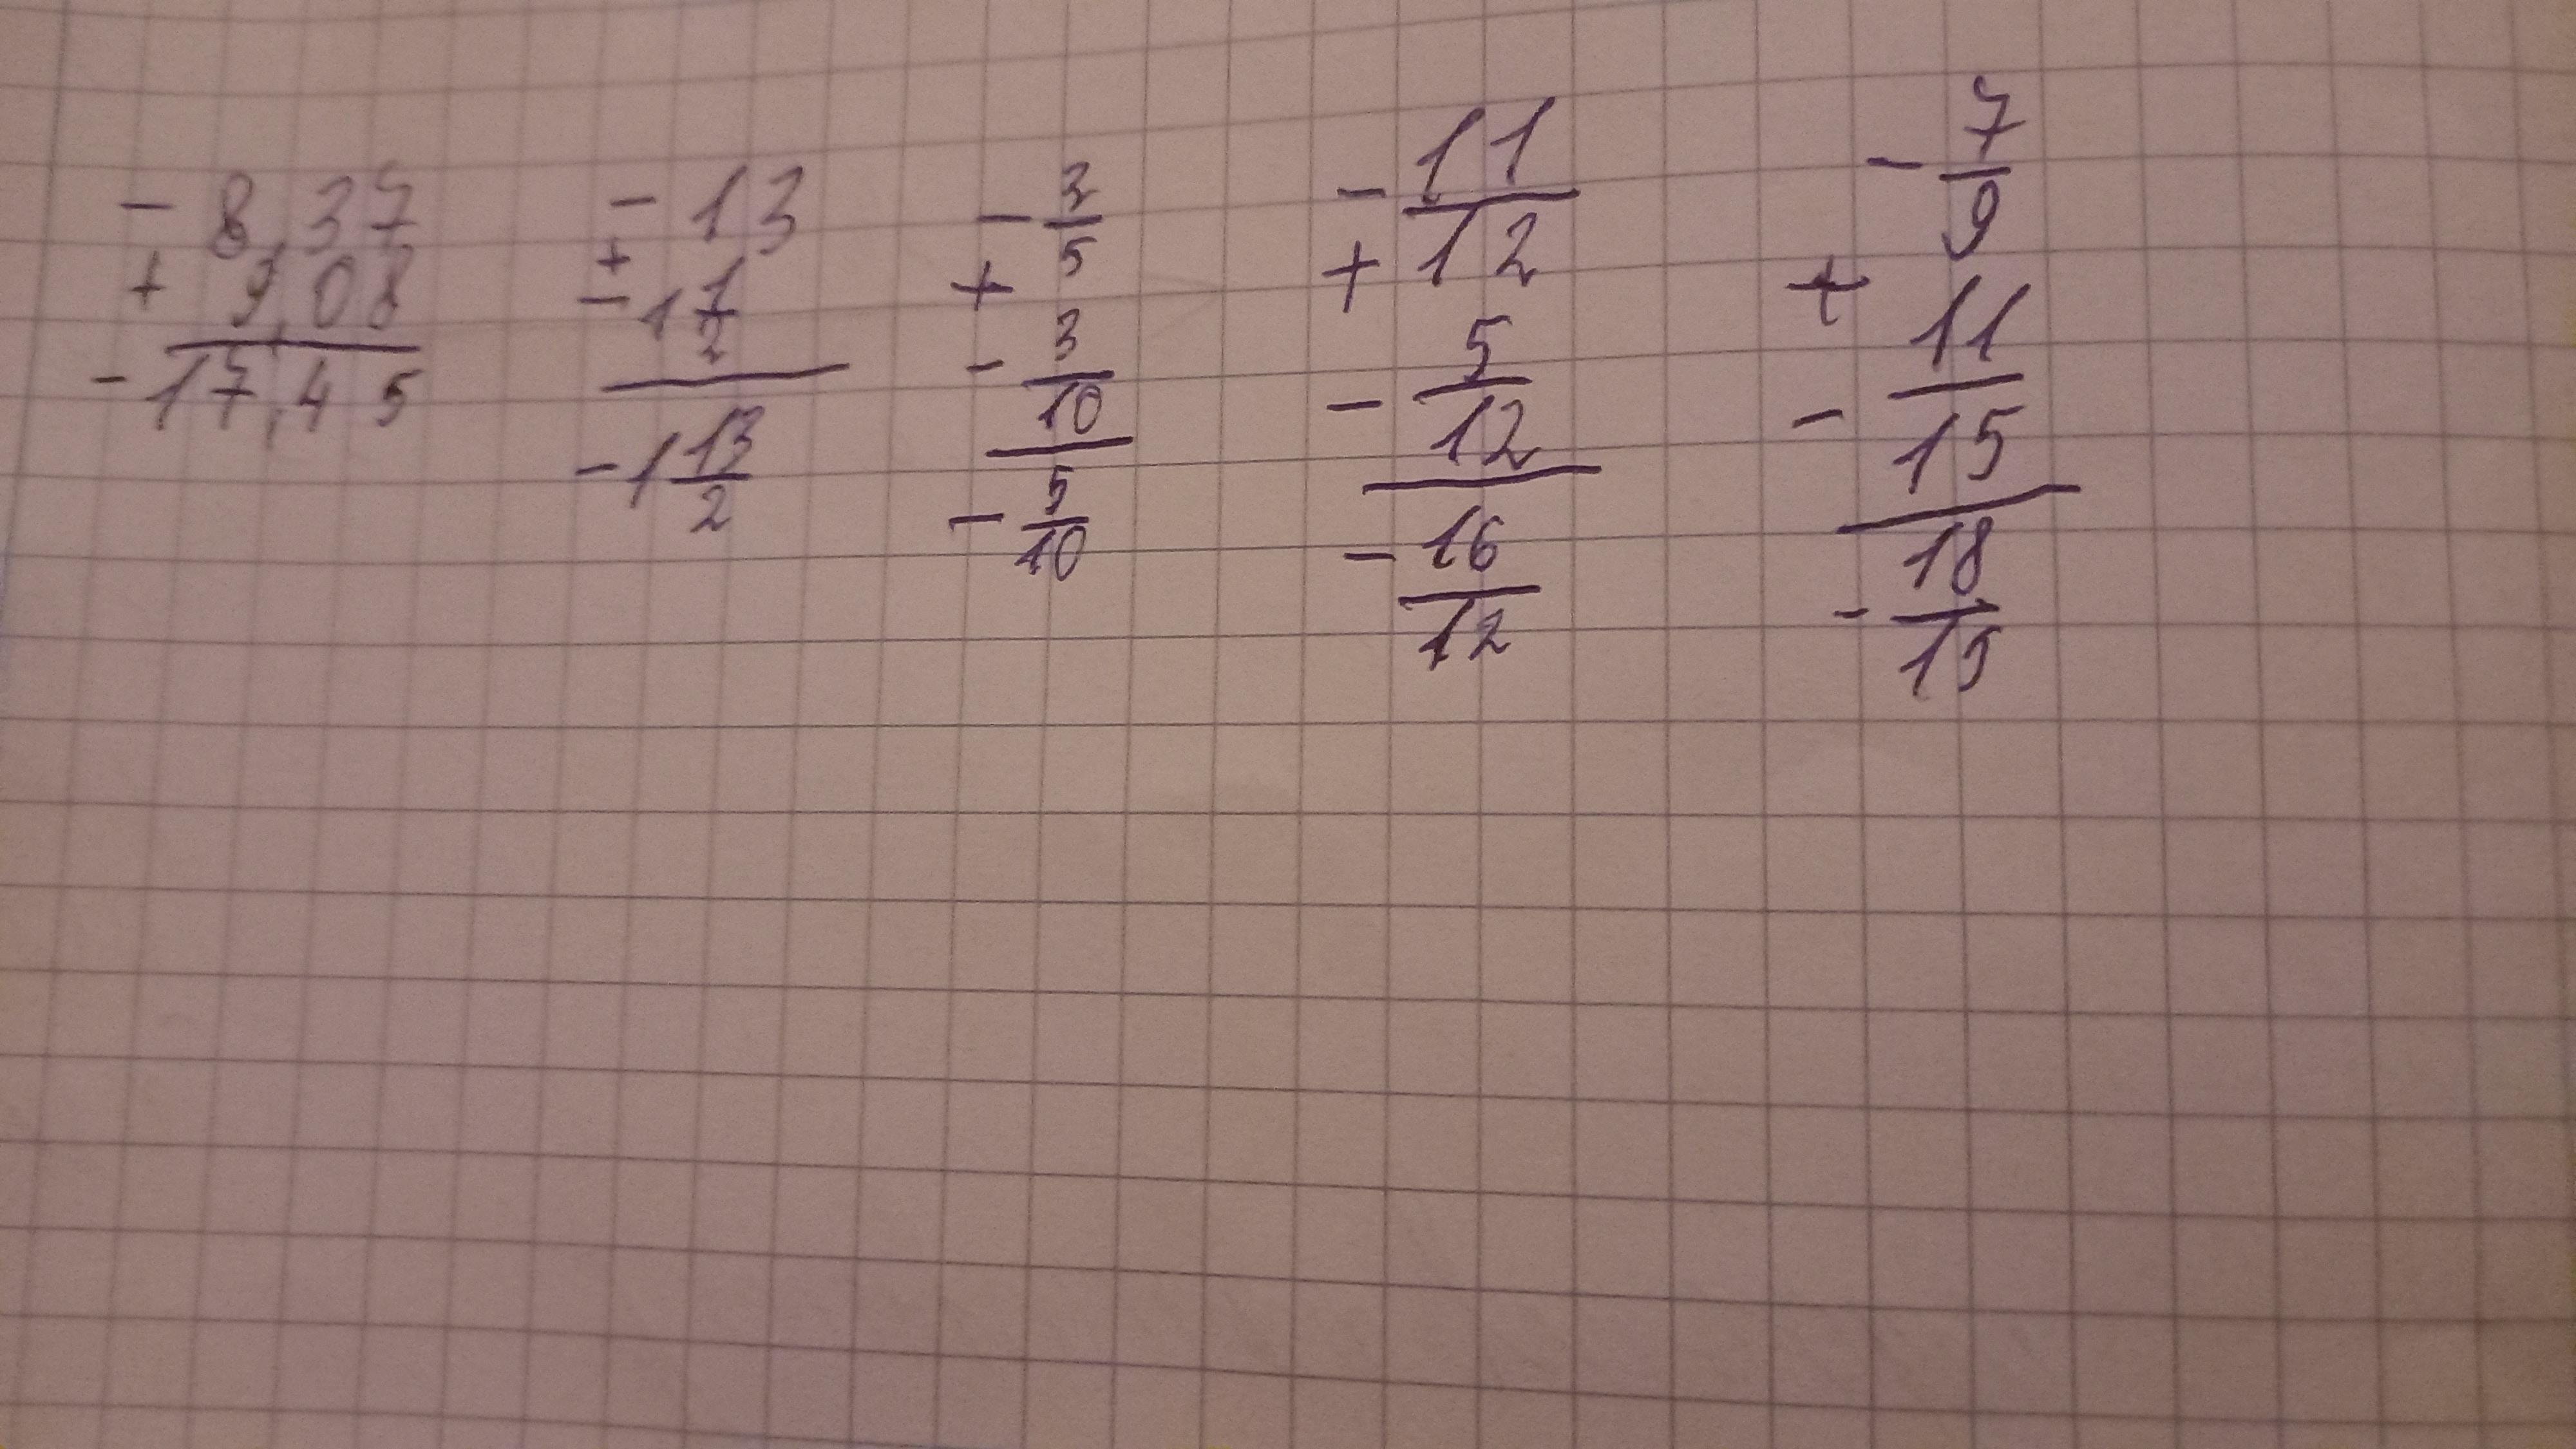 - 8,37
+ 9,08
- 17,45
- 13
+
- 1 1/2
- 1 13/2
- 2/5
+
- 3/10
- 5/10
- 11/12
+
- 5/12
- 16/12
- 7/9
+
- 11/15
- 18/15